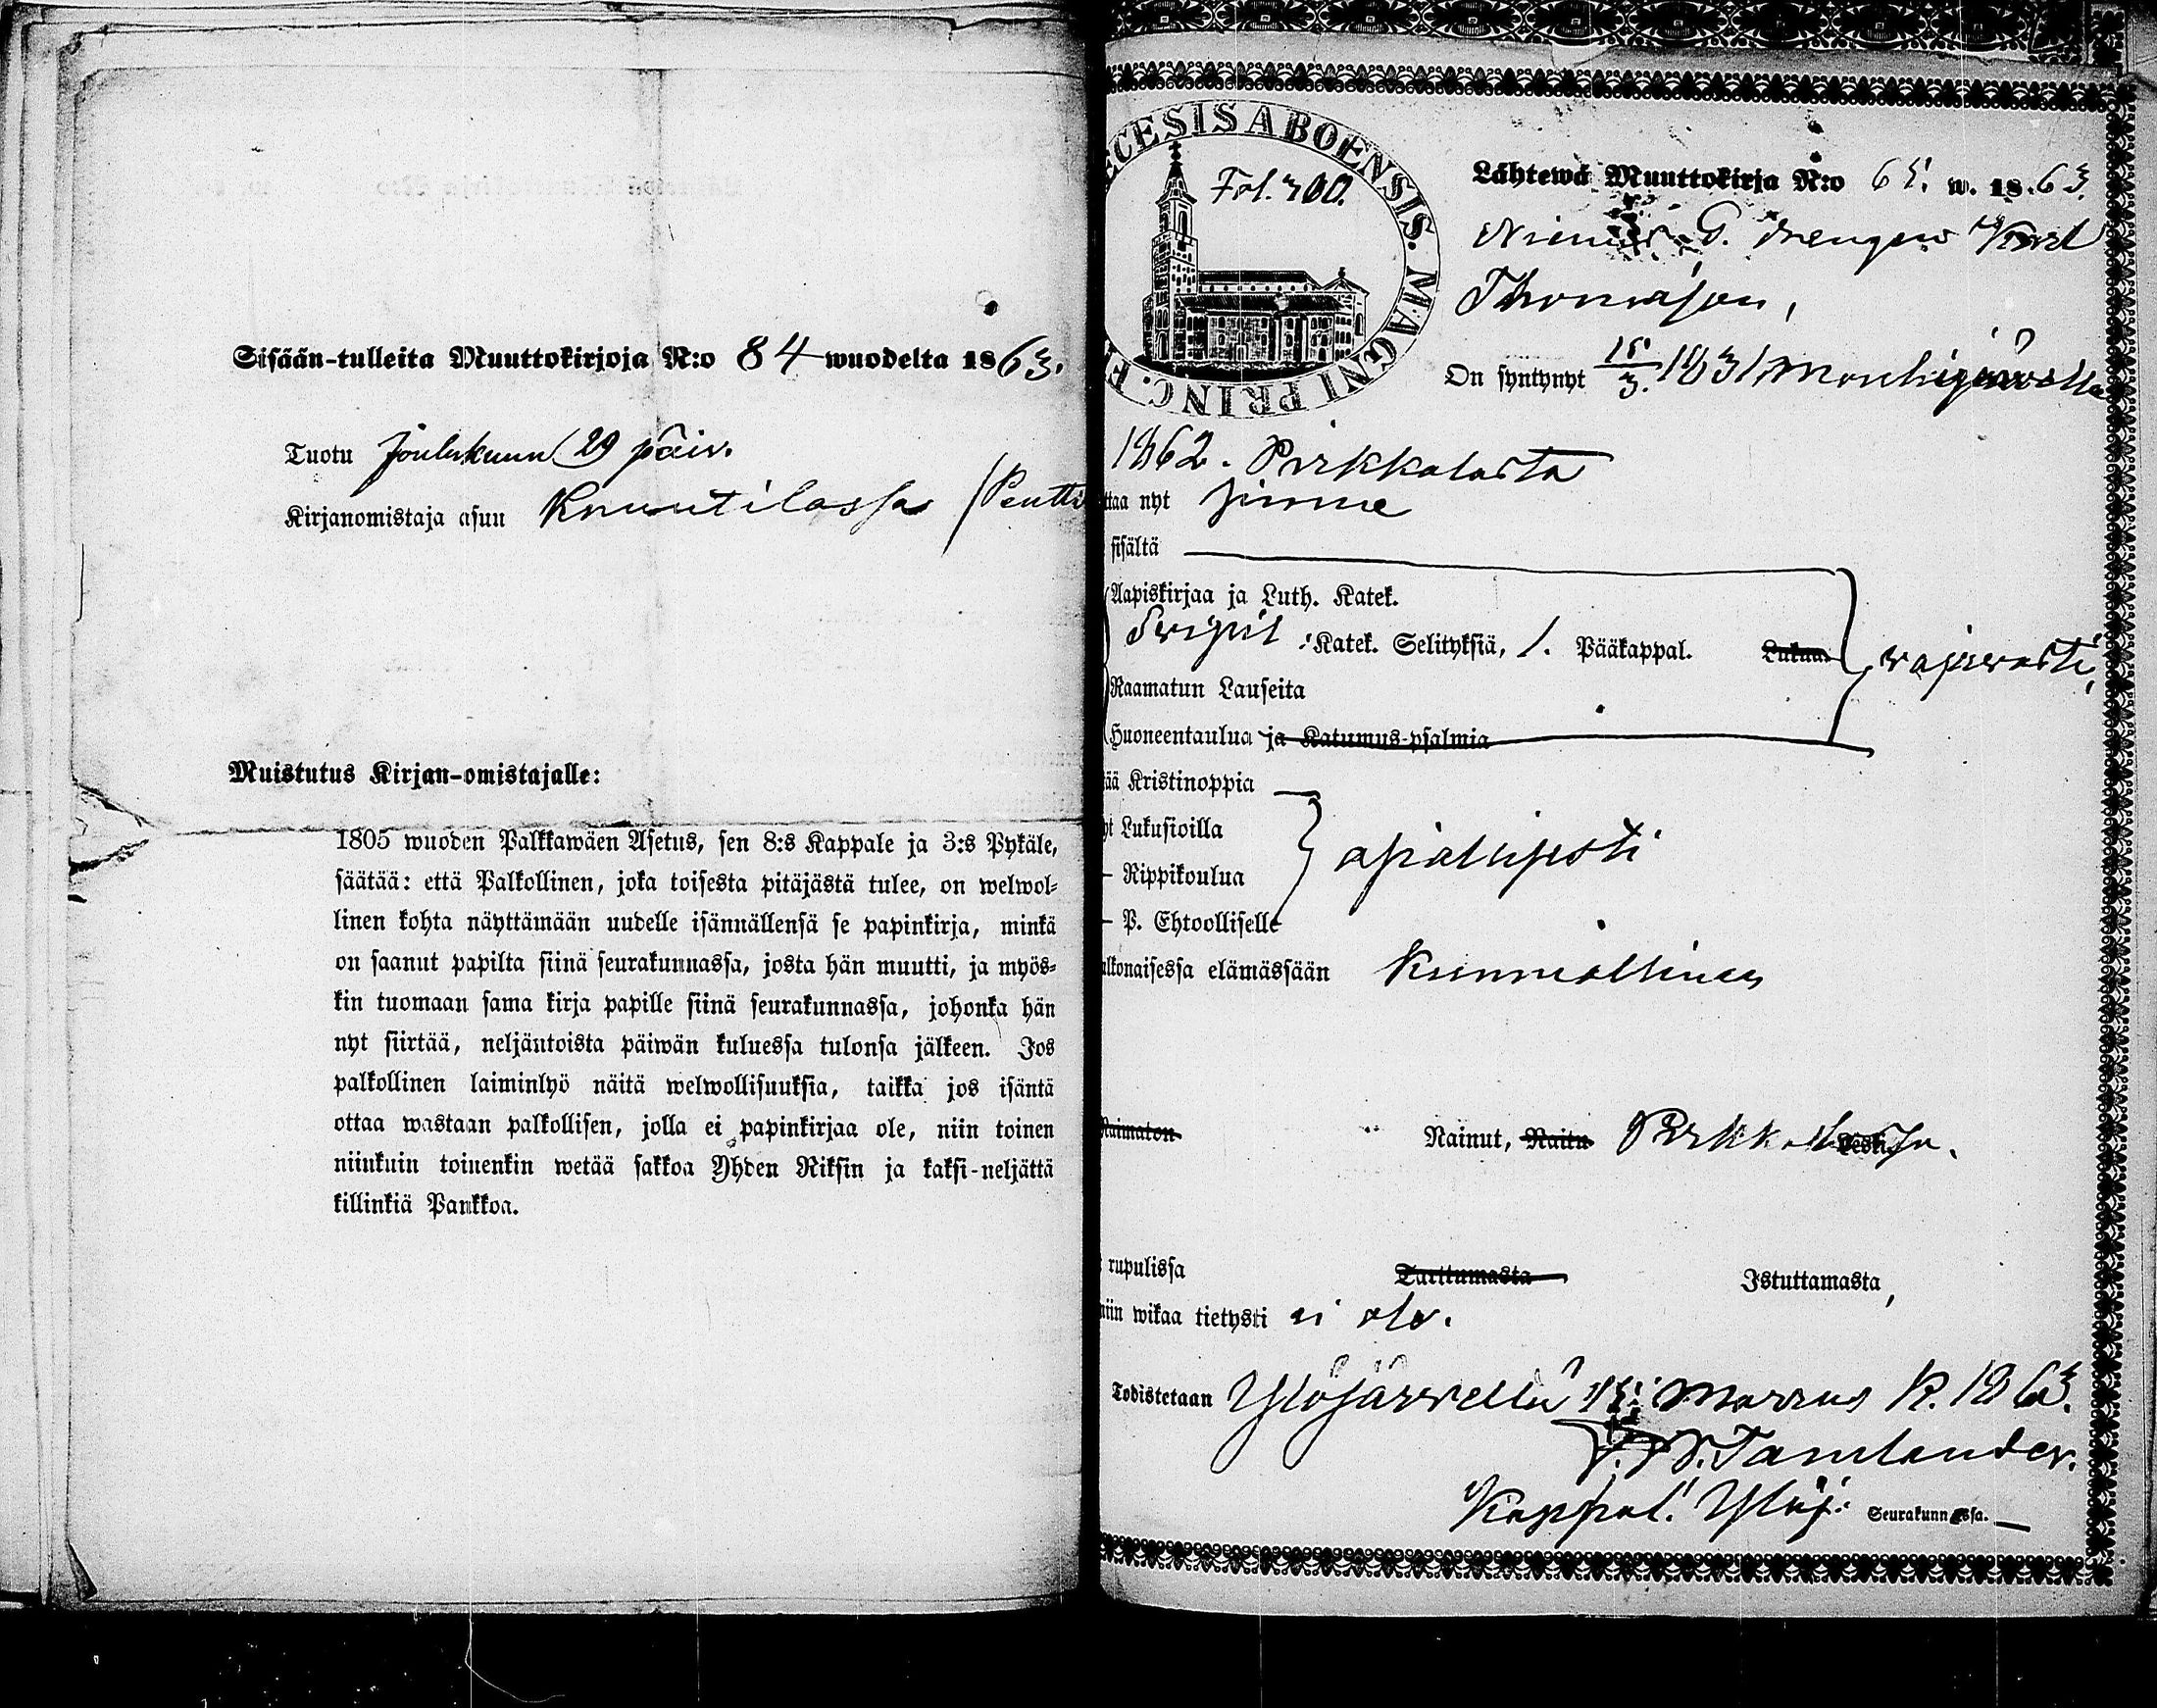 Sisään-tulleita Muuttokirjoja N:o 84 wuodelta 1863.
Tuotu Joulukuun 29 päiv.
Kirjanomistaja asuu Knuutilassa (Pentti
Muistutus Kirjan-omistajalle:
1805 wuoden Palkkawäen Asetus, sen 8:s Kappale ja 3:s Pykäle,
säätää: että Palkollinen, joka toisesta pitäjästä tulee, on welwol-
linen kohta näyttämään uudelle isännällensä se papinkirja, minkä
on saanut papilta siinä seurakunnassa, josta hän muutti, ja myös-
kin tuomaan sama kirja papille siinä seurakunnassa, johonka hän
nyt siirtää, neljäntoista päiwän kuluessa tulonsa jälkeen. Jos
palkollinen laiminlyö näitä welwollisuuksia, taikka jos isäntä
ottaa wastaan palkollisen, jolla ei papinkirjaa ole, niin toinen
niinkuin toinenkin wetää sakkoa Yhden Riksin ja kaksi-neljättä
killinkiä Pankkoa.
ECESIS ABOENSIS. MAGNI PRINC. F
Fol. 200.
Lähtewä Muuttokirja N:o 65. w. 1863
G. drengen Karl
Thomasson,
On syntynyt 15/3. 1831
1862. Pirkkalasta
ttaa nyt sinne
sisältä
Aapiskirjaa ja Luth. Katek.
Svipil: Katek. Selityksiä, 1. Pääkappal. Lukua
wajawasti,
Raamatun Lauseita
Huoneentaulua ja Katumus-psalmia
ää Kristinoppia
yt Lukusioilla
– Rippikoulua
– P. Ehtoolliselle
ahkerasti
lkonaisessa elämässään Kunniallinen
Naimaton Nainut, Naitu Pirkkalassa. Leski
rupulissa Tarttumasta Istuttamasta,
niin wikaa tietysti ei ole.
Todistetaan Ylöjärvellä 15: Marras K. 1863.
Tamlander.
Kappal. Ylöj. Seurakunnassa.